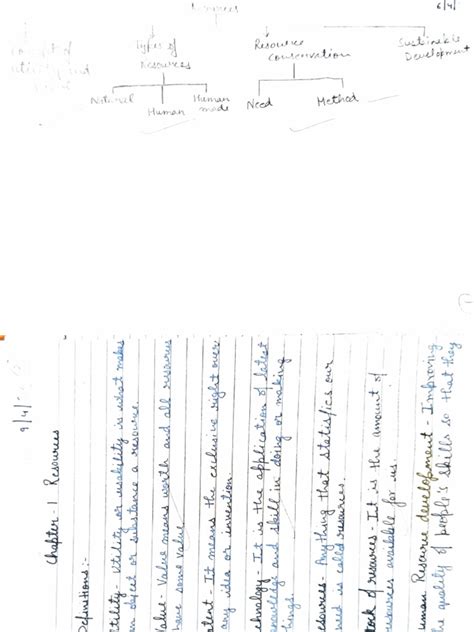 Resources
6/4/
Concept of
Utility and
Types of
Resources
Natural
Human
Human
made
Resource
Conservation
Need
Method
Sustainable
Development
9/4/
Chapter - 1 Resources
Definitions :-
Utility - Utility or usability is what makes
an object or substance a resource.
Value - Value means worth and all resources
have some value.
atent - It means the exclusive right over
any idea or invention.
chnology - It is the application of latest
knowledge and skill in doing or making
things.
esources - Anything that statisfics our
need is called resources.
tock of resources - It is the amount of
resources available for us.
uman Resource development - Improving
the quality of people's skills so that they